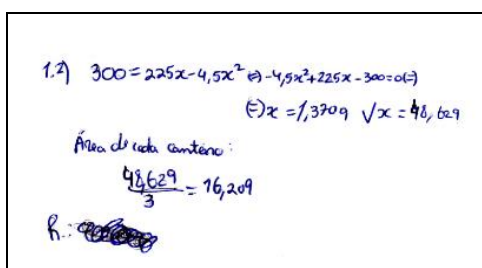 1.2) 300 = 225x - 4,5x² (=) -4,5x² + 225x - 300 = 0 (=)
(=) x = 1,3709 √ x = 48,629
Área de cada canteiro:
48,629/3 = 16,209
R: